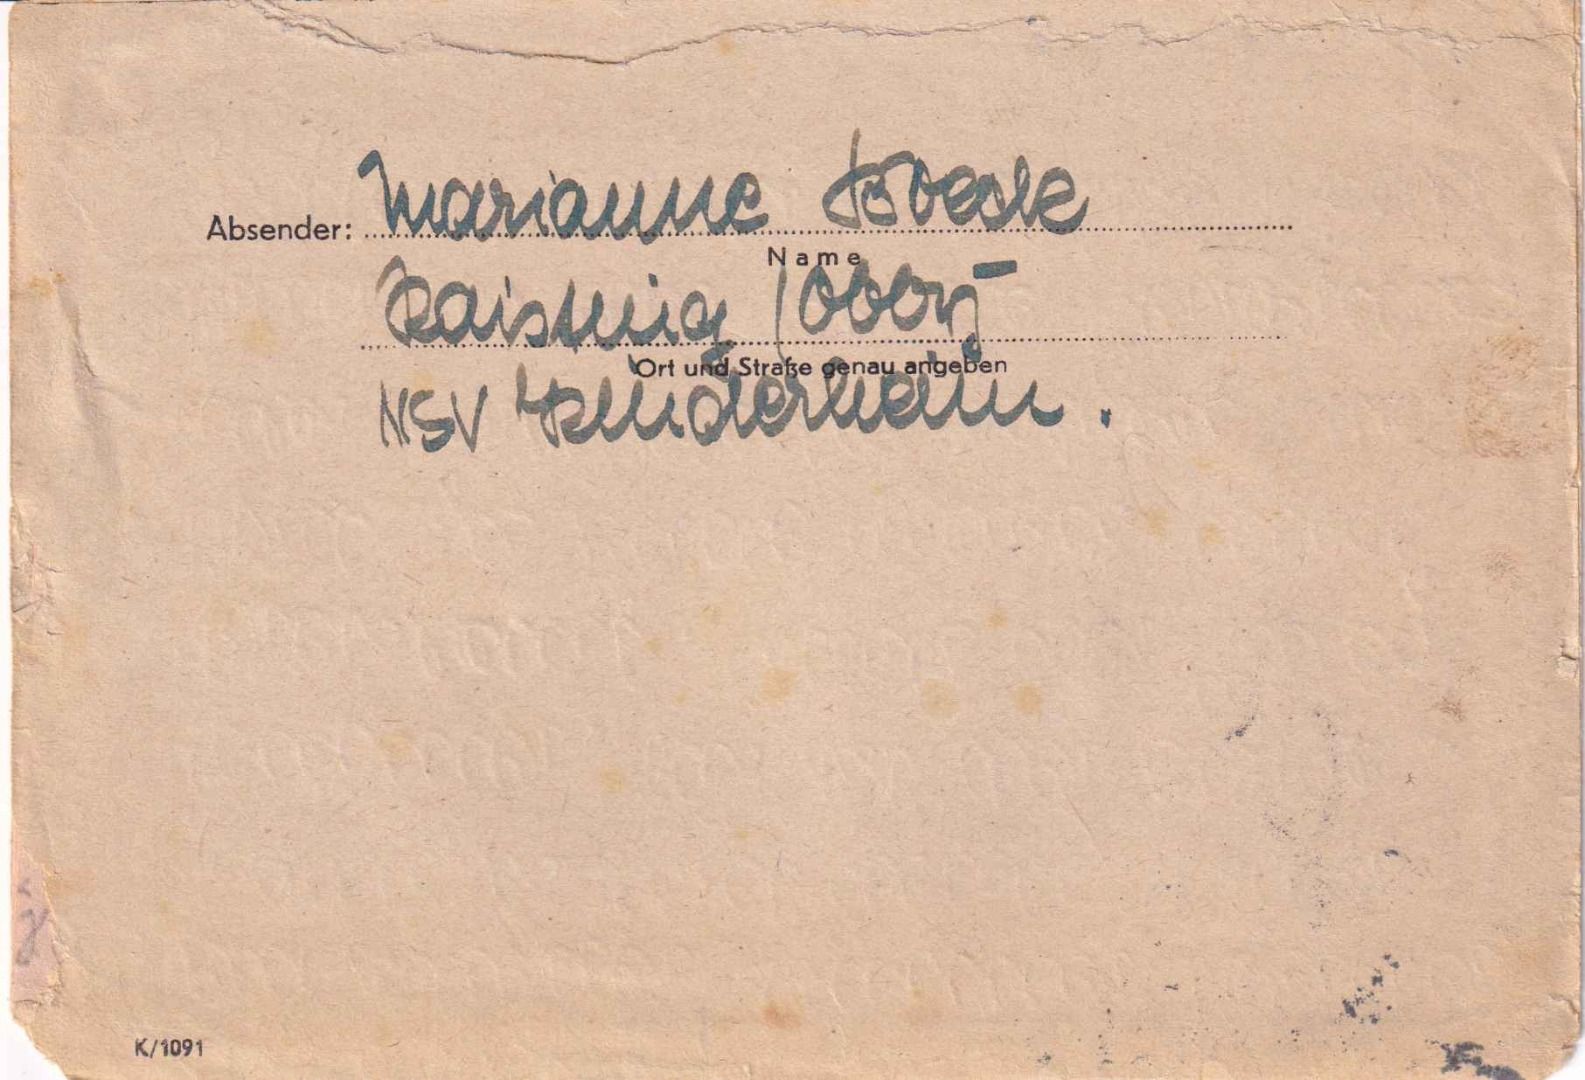 Absender: Marianne Boeck
Name
Raisting / Obby
Ort und Straße genau angeben
NSV Kinderheim.
K/1091